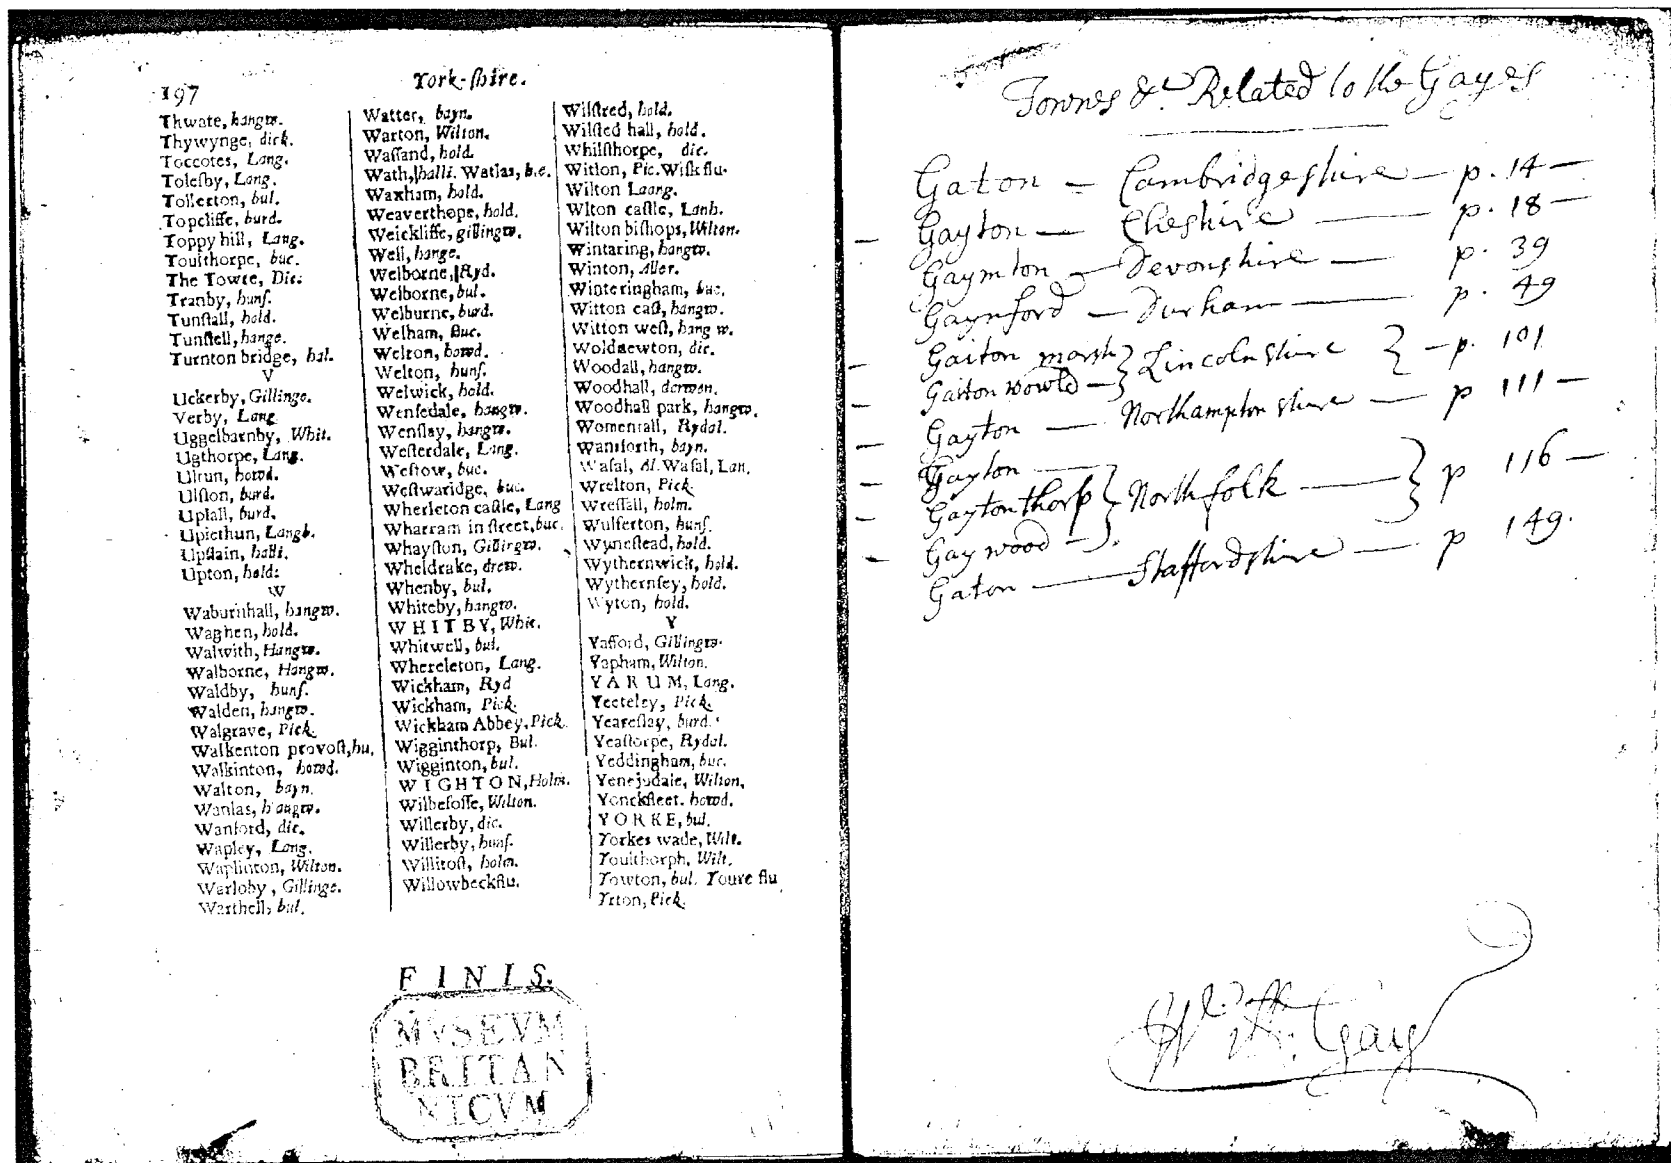 197
York-ſhire.
Thwate, hangw.
Thywynge, dick.
Toccotes, Lang.
Toleſby, Lang.
Tollerton, bul.
Topcliffe, burd.
Toppy hill, Lang.
Toulthorpe, buc.
The Towre, Dic.
Tranby, hunſ.
Tunſtall, hold.
Tunſtell, hange.
Turnton bridge, hal.
V
Uckerby, Gillings.
Verby, Lang
Uggelbarnby, Whit.
Ugthorpe, Lang.
Ulrun, howd.
Ulſton, burd.
Upſall, burd.
Upſlain, halli.
Upton, hold:
W
Waburnhall, hangw.
Waghen, hold.
Walwith, Hangw.
Walborne, Hangw.
Waldby, hunſ.
Walden, hangw.
Walgrave, Pick.
Walkenton provoſt, hu.
Walkinton, howd.
Walton, bayn.
Wanlas, hangw.
Wanford, dic.
Wapley, Lang.
Waplinton, Wilton.
Warloby, Gillings.
Warthell, bul.
Watter, bayn.
Warton, Wilton.
Waſſand, hold.
Wath, halli. Watlas, h.e.
Waxham, hold.
Weaverthope, hold.
Weickliffe, gillingw.
Well, hange.
Welborne, Ryd.
Welborne, bul.
Welburne, burd.
Welham, Buc.
Welton, howd.
Welton, hunſ.
Welwick, hold.
Wenſedale, hangw.
Wenſlay, hangw.
Weſterdale, Lang.
Weſtow, buc.
Weſtwaridge, buc.
Wherleton caſtle, Lang
Wharram in ſtreet, buc.
Whayſton, Gillingw.
Wheldrake, drew.
Whenby, bul.
Whiteby, hangw.
WHITBY, Whit.
Whitwell, bul.
Whereleton, Lang.
Wickham, Ryd
Wickham, Pick.
Wickham Abbey, Pick.
Wigginthorp, Bul.
Wigginton, bul.
WIGHTON, Holm.
Wilbefoſſe, Wilton.
Willerby, dic.
Willerby, hunſ.
Willitoft, holm.
Willowbeckflu.
Wilſtred, hold.
Wilſted hall, hold.
Whilſthorpe, dic.
Witlon, Pic. Wiſk flu.
Wilton Laang.
Wlton caſtle, Lanh.
Wilton biſhops, Wilton.
Wintaring, hangw.
Winton, Aller.
Winteringham, buc.
Witton eaſt, hangw.
Witton weſt, hang w.
Woldnewton, dic.
Woodall, hangw.
Woodhall, darwen.
Woodhall park, hangw.
Womentall, Rydal.
Wansforth, bayn.
Waſal, al. Waſal, Lan.
Wrelton, Pick.
Wreſſall, holm.
Wulferton, hunſ.
Wyneſtead, hold.
Wythernwick, hold.
Wythernſey, hold.
Wyton, hold.
Y
Yafford, Gillingw.
Yapham, Wilton.
YARUM, Lang.
Yeeteley, Pick.
Yeareſlay, burd.
Yeaſtorpe, Rydal.
Yeddingham, buc.
Yenejudale, Wilton,
Yonckfleet. howd.
YORKE, bul.
Yorkes wade, Wilt.
Youlthorph, Wilt.
Yowton, bul. Youre flu
Yrton, Pick.
FINIS.
MVSEVM
BRITAN
NICVM
Townes &c. Related to the Gayes
Gaton — Cambridgeshire — p. 14 —
— Gayton — Cheshire — p. 18 —
Gaymton — Devonshire — p. 39
Gaynford — Durham — p. 49
— Gaiton marsh } Lincolnshire } — p. 101
— Gaiton wowld — }
— Gayton — Northamptonshire — p 111 —
— Gayton —
— Gaytonthorp } Northfolk — } p 116 —
— Gaywood — } .
Gaton — Staffordshire — p 149.
Gay